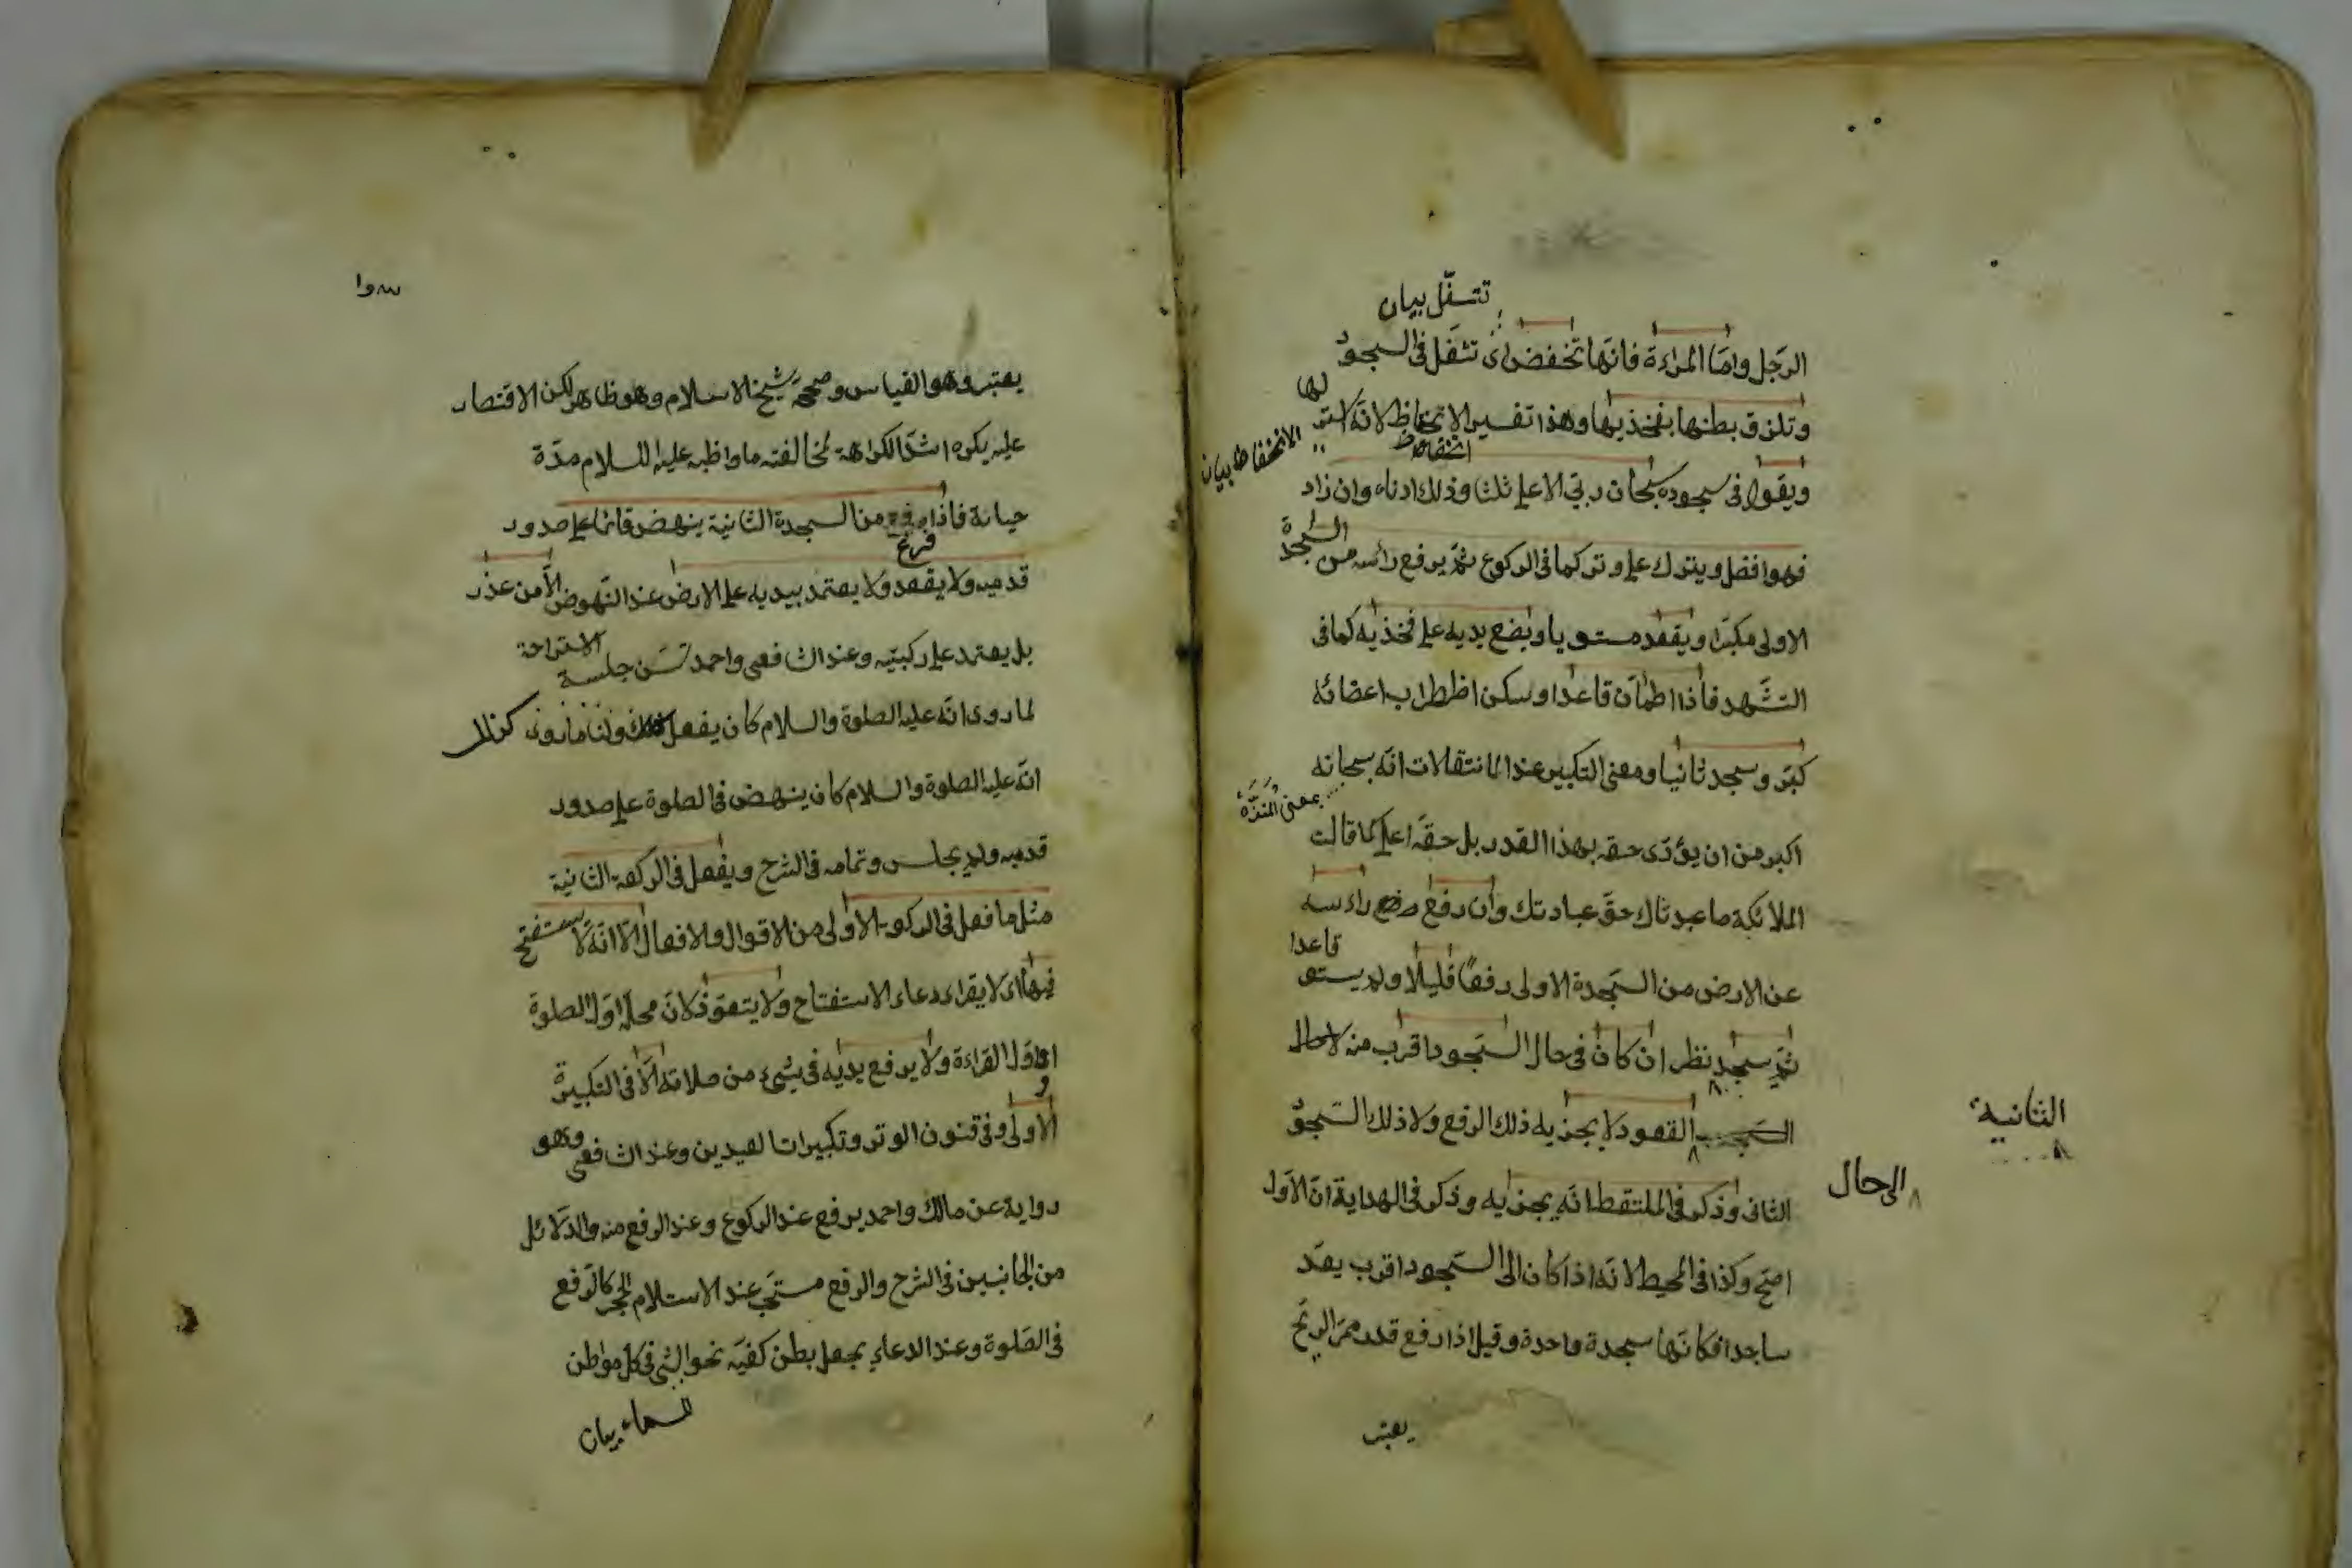 تتسفّل بيان
الرّجل وامّا المراءة فانّها تخفض اى تتفل فى السجود
وتلزق بطنها بفخذيها وهذا تفسير الانخفاظ لانّه استر لها
انخفاض
الانخفاظ بيان
ويقول فى سجوده سبحان ربّى الاعلى ثلثا وذلك ادناه وان زاد
فهوا فضل ويترك على وتر كما فى الركوع ثمّ يرفع رأسه من السجدة
الاولى مكبّرا ويقعد مستويا ويضع يديه على فخذيه كما فى
التشّهد فاذا اطمأن قاعدا وسكن اظطراب اعضائه
كبّر وسجد ثانيا ومعنى التكبير عند الانتقالات انّه سبحانه
بمعنى المنزّه
اكبر من ان يؤدّى حقه بهذا القدر بل حقّه اعلى كما قالت
الملائكة ما عبدناك حقّ عبادتك وان رفع راءسه
عن الارض من السّجدة الاولى رفعًا قليلا ولم يستو قاعدا
ثمّ سجد نظر ان كان فى حال السّجود اقرب منه لاحال
القعود لا يجزيه ذلك الرفع ولا ذلك السّجود
الثانية
الى حال
الثانى وذكر فى الملتقط انّه يجزيه وذكر فى الهداية انّ الاوّل
اصحّ وكذا فى المحيط لانّه اذا كان الى السّجود اقرب يعدّ
ساجدا فكانّها سجدة واحدة وقيل اذا رفع قدر ممرّ الريح
يعتبر
يعتبر وهو القياس وصحّحه شيخ الاسلام وهو ظاهر لكن الاقتصار
عليه يكره اشدّ الكراهة لمخالفته ما واظب عليه السلام مدّة
حياته فاذا رفع من السجدة الثانية ينهض قائما على صدور
فرغ
قدميه ولا يقعد ولا يعتمد بيديه على الارض عند النّهوض الّا من عذر
بل يعتمد على ركبتيه وعند الشافعى واحمد تسنّ جلسة الاستراحة
لما روى انّه عليه الصلوة والسلام كان يفعل كذلك ولنا ما روى
انّه عليه الصلوة والسلام كان ينهض فى الصلوة على صدور
قدميه ولم يجلس وتمامه فى الشرح ويفعل فى الركعة الثانية
مثل ما فعل فى الركوع الاولى من الاقوال والافعال الّا انّه لا يستفتح
فيها اى لا يقراء دعاء الاستفتاح ولا يتعوّذ لانّ محلّه اوّل الصلوة
او اوّل القراءة ولا يرفع يديه فى شىء من صلاته الّا فى التكبيرة
الاولى وفى قنوت الوتر وتكبيرات العيدين وعند الشافعى وهو
رواية عن مالك واحمد يرفع عند الركوع وعند الرفع منه والدّلائل
من الجانبين فى الشرح والرفع مستحبّ عند الاستلام الحجر كالرفع
فى الصّلوة وعند الدعاء يجعل بطن كفّيه نحو الشى فى كل مواطن
السماء بيان